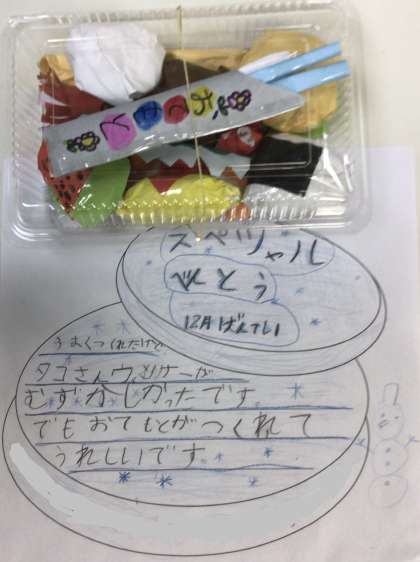 おてもと
スペシャル
べんとう
12月げんてい
うまくつくれたけど
タコさんウィンナーが
むずかしかったです。
でもおてもとがつくれて
うれしいです。